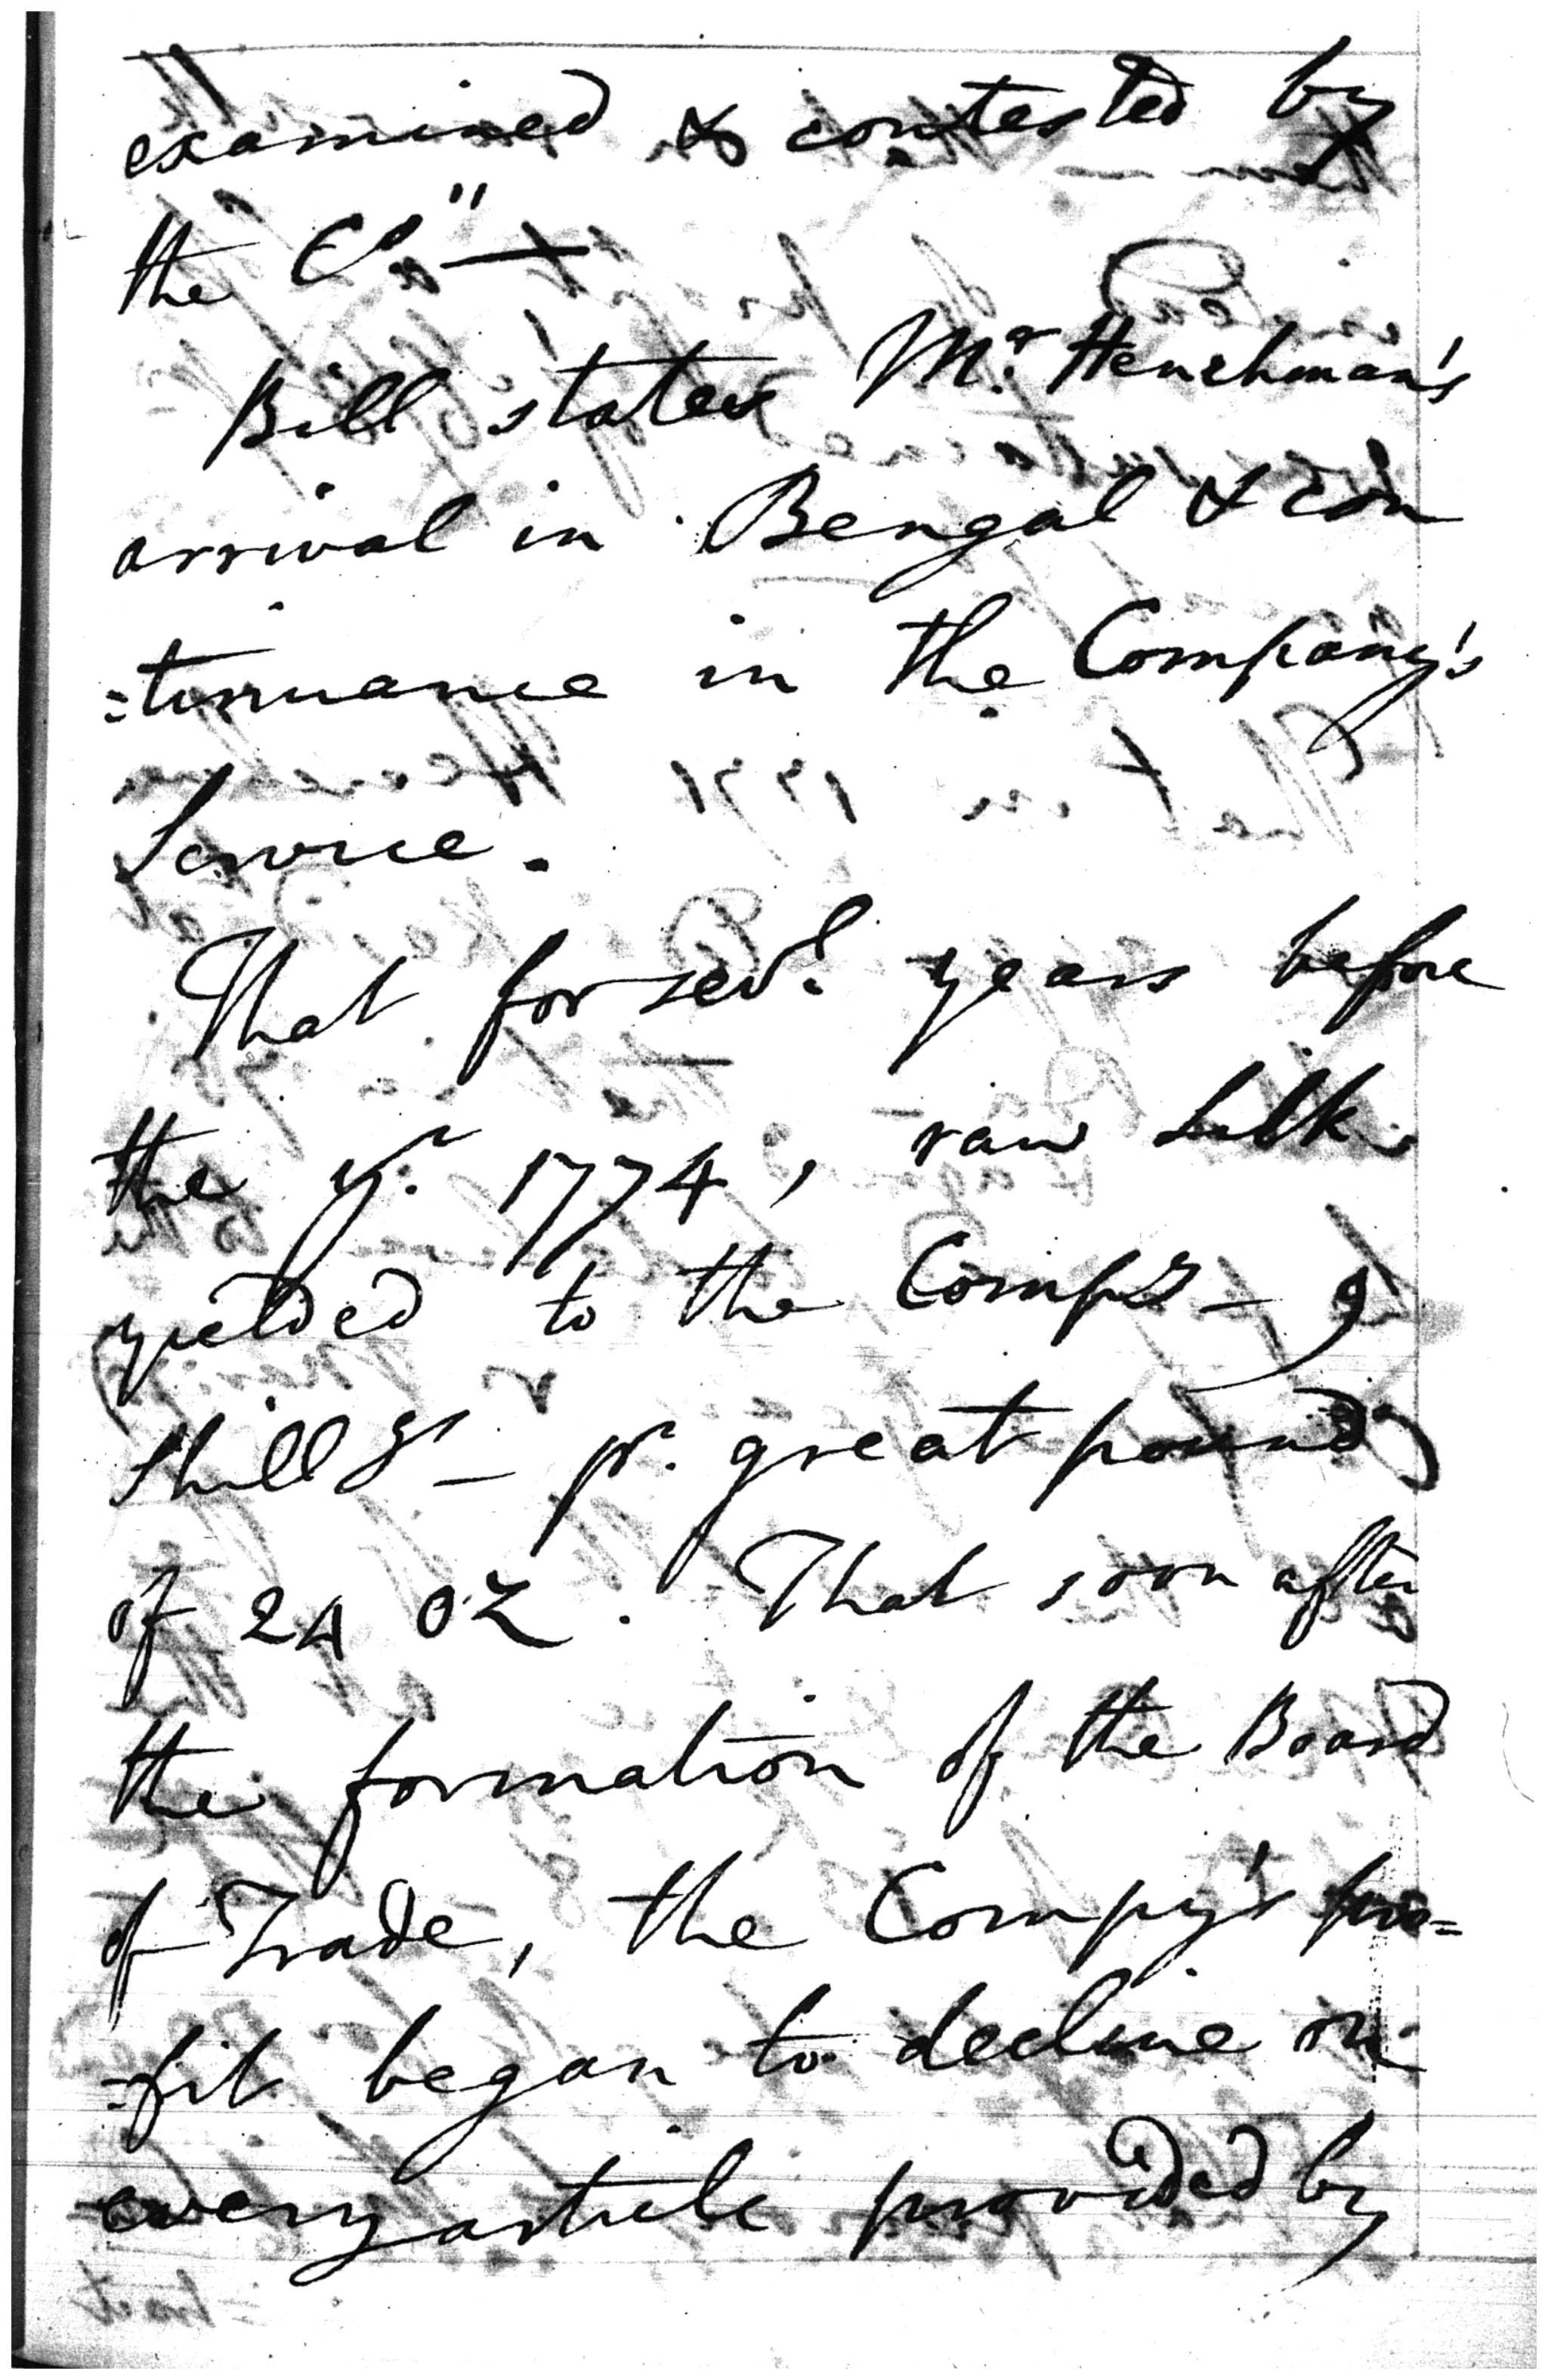 examined & contested by
the Co." —
Bill states Mr. Henchman's
arrival in Bengal & con
=tinuance in the Company's
Service.
That for sevl. years before
the yr. 1774, raw silk
yielded to the Compy — 9
Shillgs — pr. great pound
of 24 oz. That soon after
the formation of the Board
of Trade, the Compy's pro=
=fit began to decline on
every article provided by